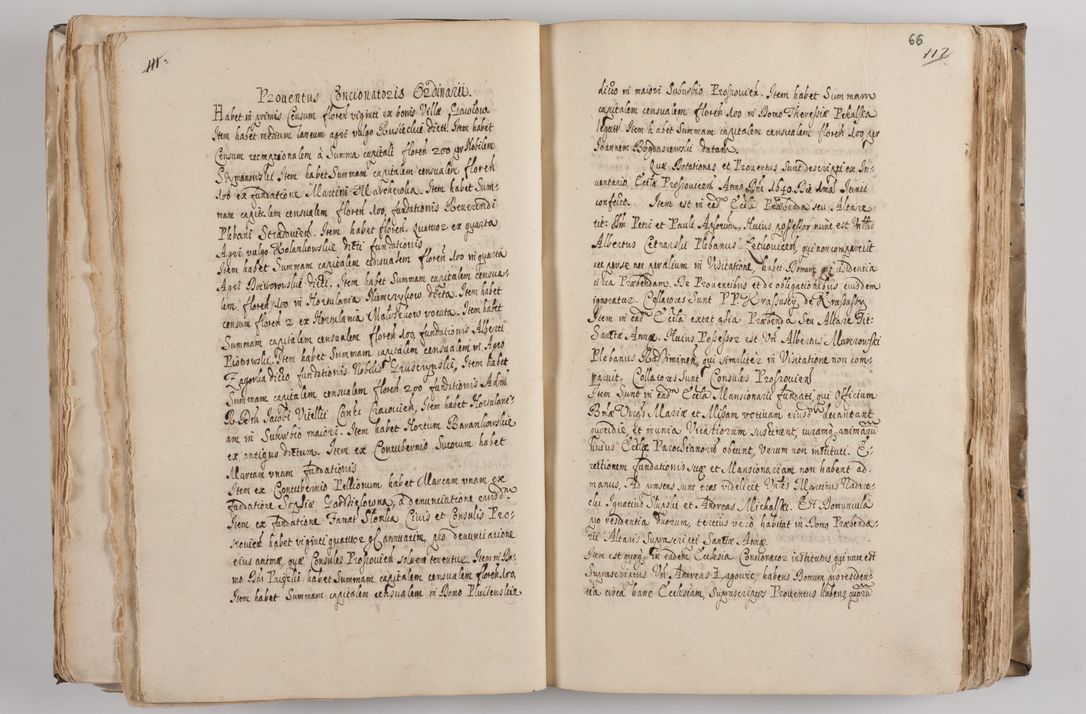 111.
Prouentus Concionatoris Ordinarii.
Habet in primis Censum floren viginti ex bonis Villæ
Item habet medium laneum agri vulgo dicti. Item habet
Censum reemptionalem à Summa capitali floren 200 per Nobilem
Item habet Summam capitalem censualem floren
100 ex fundatione Martini Marchewka. Item habet Sum-
mam capitalem censualem floren 100, fundationis Reuerendi
Plebani Stradovien. Item habet floren. quatuor ex quarta
Agri vulgo Kolankowskie dicti fundationis
Item habet Summam capitalem censualem floren 100 in quarta
Agri Boiworowskie dicti. Item habet Summam capitalem censua-
lem floren 100 in Hortulania dicta. Item habet
censum floren 2 ex Hortulania vocata. Item habet
Summam capitalem censualem floren 100, fundationis Alberti
Piotrowskie. Item habet Summam capitalem censualem in Agro
Zagorda dicto fundationis Nobilis Item habet
Summam capitalem censualem floren 200 fundationis Adm
R. Dni Jacobi Vitellii Canci Cracovien, Item habet Hortulani-
am in Suburbio maiori. Item habet Hortum Barankowskie
ex antiquo dictum. Item ex Contubernio Sutorum habet
Marcam vnam fundationis
Item ex Contubernio Pellionum habet Marcam vnam ex
fundatione Sophiæ à denunciatione eiusd
Item ex fundatione Famat Slonka Civis et Consulis Pro-
szovien habet viginti quatuor per Cannuatim, pro denunciatione
eius animæ, quæ Consules Proszovien soluere tenentur. Item in Do-
mo Dni habet Summam capitalem censualem floren 100.
Item habet Summam capitalem censualem in Domo
66
112
dicto in maiori Suburbio Proszovien. Item habet Summam
capitalem censualem floren 100 in Domo Theresiæ Pekalska
legatam. Item habet Summam capitalem censualem floren 100 per
Joannem Bogdaszewski datam.
Quæ Dotationes et Prouentus Sunt descripti ex In-
uentario Ecclæ Proszovien Anno Dni 1640. Die 1ma Junii
confecto. Item est in ead Eccla Præbenda seu Altare
tit: SSm Petri et Pauli Aplorum, Huius possessor nunc est
Albertus Cetnarski Plebanus qui non comparuit
nec per se nec per alium in Visitatione, habet Domum pro residentia
circa Præbendam. De Prouentibus et de obligationibus eiusdem
ignoratur. Collatores Sunt PP. Krassuscy de Krassusy
Item in ead Eccla extat alia Præbenda Seu Altare Tit:
Sanctæ Annæ. Huius Possessor est Albertus Marczowski
Plebanus qui similiter in Visitatione non com-
paruit. Collatores Sunt Consules Proszovien
Item Sunt in ead Eccla Mansionarii fundati, qui Officium
Bmæ Virgis Mariæ et Missam votivam eiusd decantant
quotidie, et munia Vicariorum sustinent, curamq animaru
huius Ecclæ Parochianoris obeunt, verum non instituti. E-
rectionem fundationis suæ et Mansionariam non habent ad
manus. Ad præsens sunt tres videlicet Martinus
Ignatius Slupski et Andreas Michalski. Est Domuncula
pro residentia duorum, tertius verò habitat in Domo Præbenda-
rii Altaris Suprascripti Sanctæ Annæ.
Item est quoq in eadem Ecclesia Concionator institutus, qui nunc est
Suprascriptus Andreas habens Domum pro residen-
tia circa hanc Ecclesiam, Suprascriptos Prouentus habens, quoru